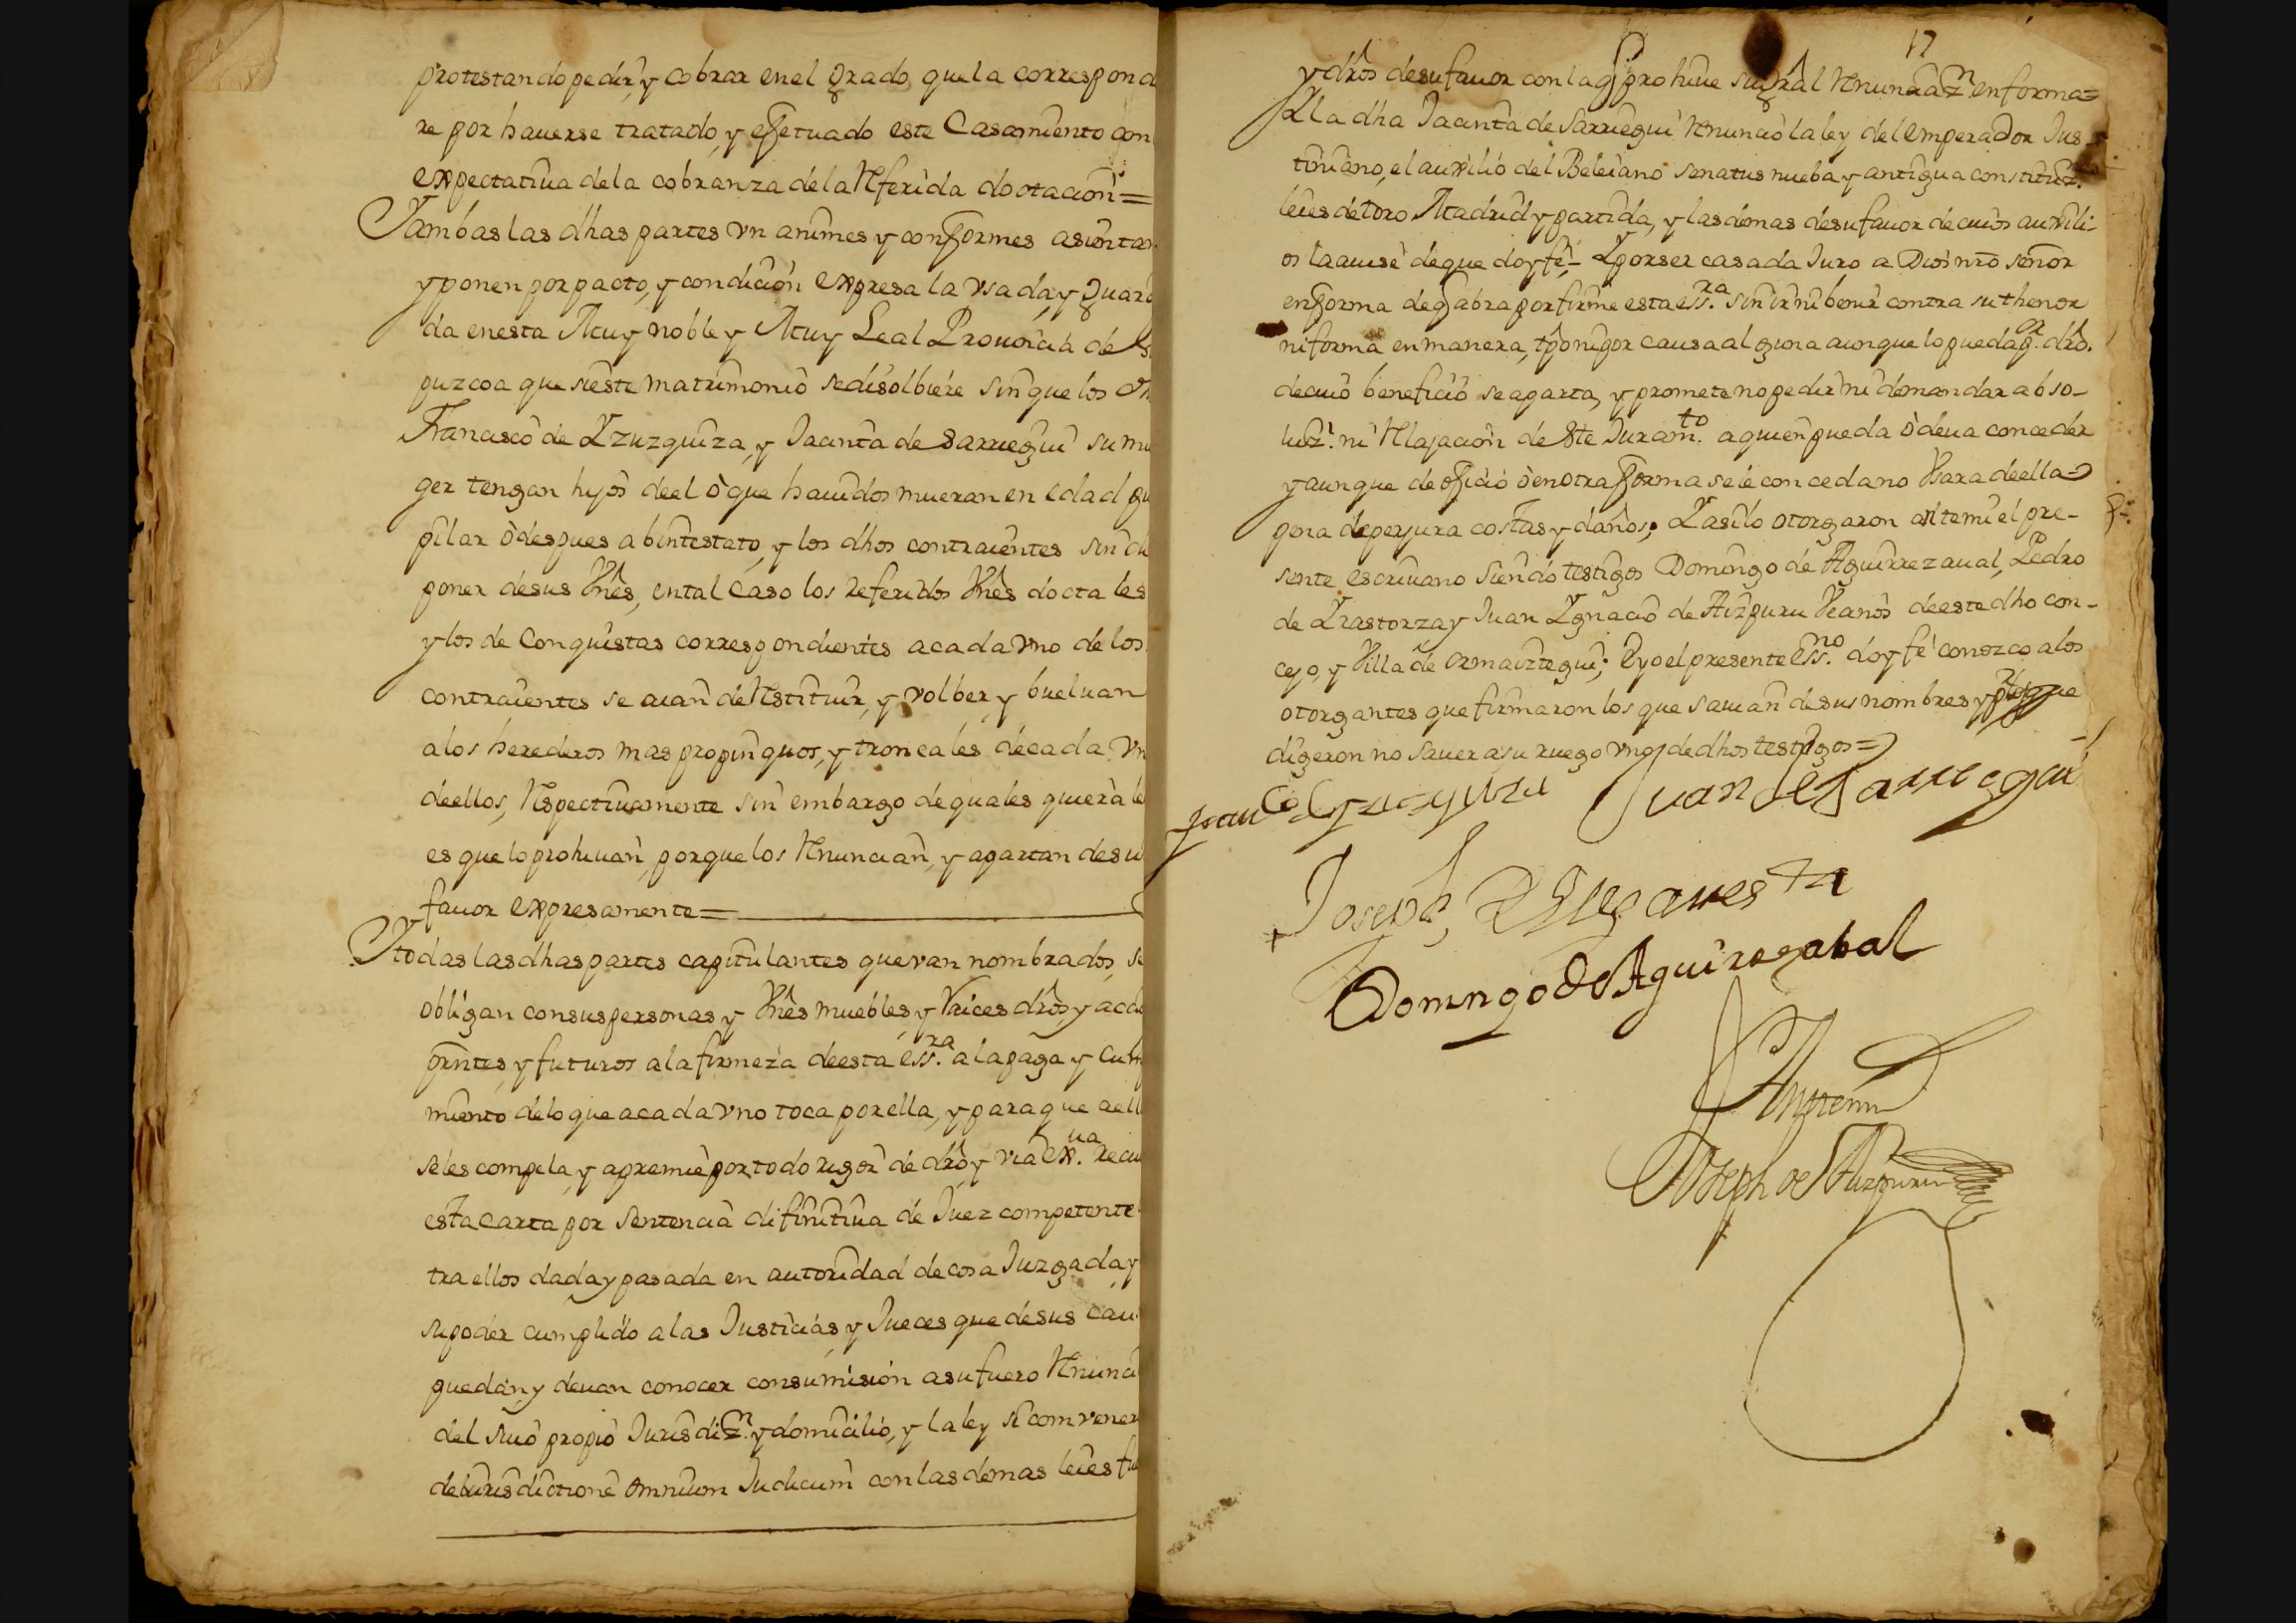 protestando pedir, y cobrar en el grado que la correspond
re por hauerse tratado, y efetuado este Casamiento con
expectatiua de la cobranza de la Referida dotacion=
Yambas las dhas partes vnanimes y conformes asientan
y ponen por pacto, y condicion expresa la vsada, y Guard
da en esta Muy noble y Muy Leal Prouincia de
puzcoa que si este matrimonio se disolbiere sin que los
Francisco de Yzuzquiza, y Jacinta de Sarriegui su mu
ger tengan hijos de el ò que hauidos mueran en edad pu
pilar ò despues abintestato, y los dhos contraientes sin dis
poner de sus Vnês, en tal Caso los Referidos Vnês dotales
y los de Conquistas correspondientes a cada vno de los
contraientes se aian de Restituir, y volber y bueluan
a los herederos mas propinquos, y troncales de cada vn
de ellos, Respectiuamente sin embargo de quales quiera le
es que lo prohiuan, porque los Renuncian, y apartan de su
fauor expresamente=
Ytodas las dhas partes capitulantes que van nombrados, se
obligan con sus personas y Vnês muebles, y Raices drôs, y acci
prntes, y futuros a la firmeza de esta ess.ra a la paga y cum
miento de lo que a cada vno toca por ella, y para que a ell
se les compela, y apremie por todo rigor de drô, y via ex.ua Reciu
esta carta por sentencia difinitiua de Juez competente
tra ellos dada y pasada en autoridad de cosa Juzgada, y
su poder cumplido a las Justicias, y Jueces que de sus cau
puedan, y deuan conocer con sumision a su fuero Renunci
del suio propio Jurisdiz.n y domicilio, y la ley si comvener
de iurisdictione omnium Judicum con las demas leies fu
17
y drôs de su fauor con la q prohiue su Grâl Renunciaz.n en forma=
Y la dha Jacinta de Sarriegui Renunciò la ley del emperador Jus-
tiniano, el auxilio del Beleiano senatus nueba y antigua constituz.
leies de toro Madrid y partida, y las demas de su fauor de cuios auxili-
os la auisè de que doy fè- Y por ser casada Juro a Dios nrô señor
en forma de q abra por firme esta ess.ra sin ir ni benir contra su thenor
ni forma en manera, tpô ni por causa alguna aunque lo pueda p.r drô.
de cuio beneficio se aparta, y promete no pedir ni demandar abso-
luz.n ni Relajacion de este Juram.to a quien pueda ò deua conceder
y aunque de oficio ò en otra forma se le conceda no Vsara de ella
pena de perjura costas y daños; Y asi lo otorgaron ante mi el pre-
sente escriuano siendo testigos Domingo de Aguirrezaual, Pedro
de Yrastorza y Juan Ygnacio de Aizpuru Vecinos de este dho con-
cejo, y Villa de ormaiztegui; E yo el presente ess.no doy fè conozco a los
otorgantes que firmaron los que sauian de sus nombres y
dijeron no sauer a su ruego vno de dhos testigos=
Fran.co Yzuzquiza Juan de Sarriegui
Joseph
Domingo de Aguirezabal
Ante mi
Joseph de Aizpuru